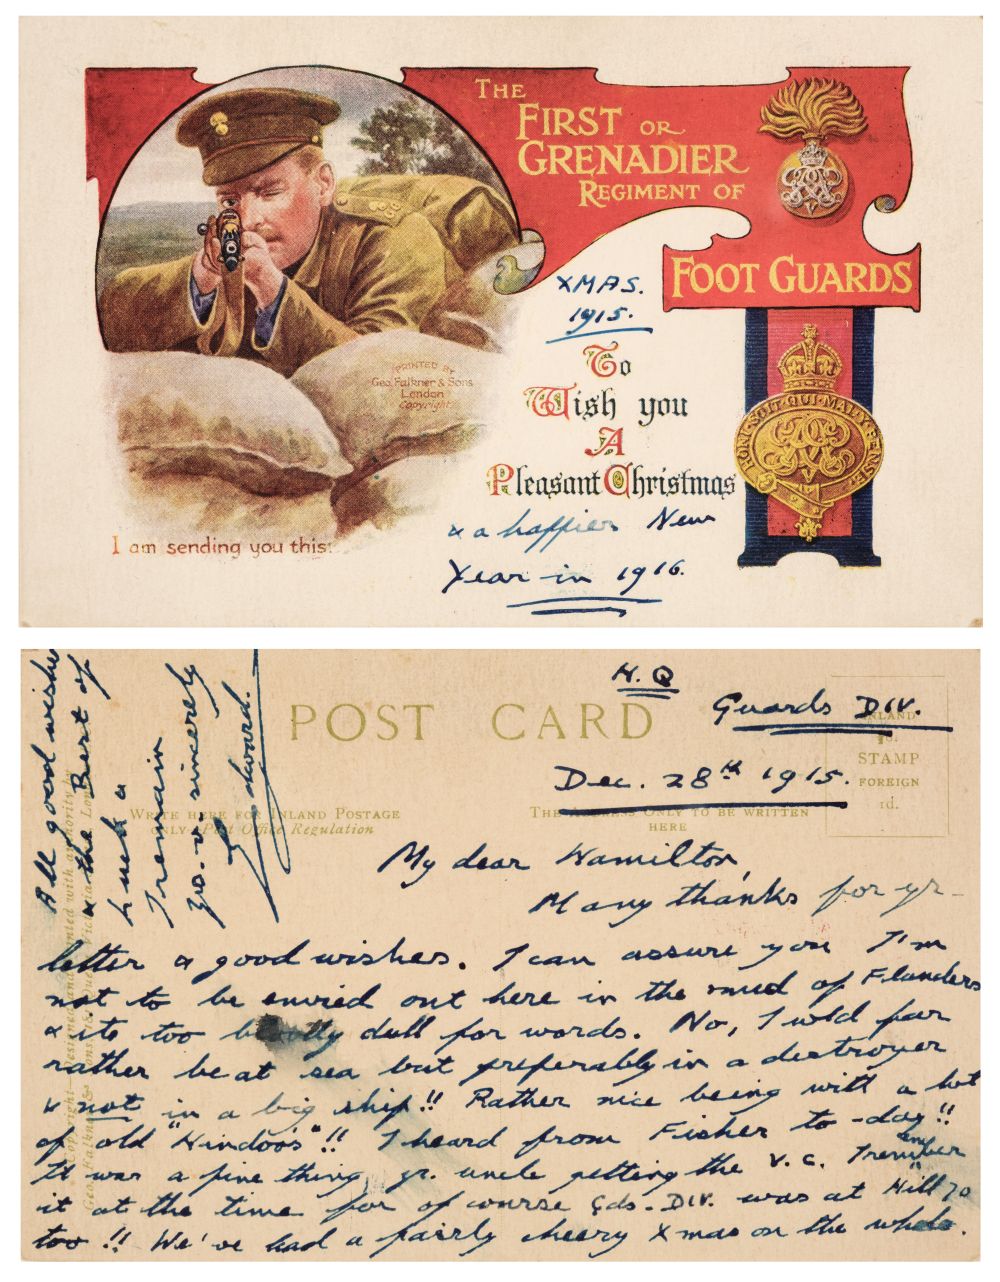 THE
FIRST OR
GRENADIER
REGIMENT OF
FOOT GUARDS
XMAS.
1915.
To
Wish you
A
Pleasant Christmas
& a happier New
Year in 1916.
PRINTED BY
Geo. Falkner & Sons
London
Copyright
HONI·SOIT·QUI·MAL·Y·PENSE
I am sending you this:
H.Q
Guards DIV.
Dec. 28th 1915.
POST CARD
WRITE HERE FOR INLAND POSTAGE
ONLY Post Office Regulation
THE ADDRESS ONLY TO BE WRITTEN
HERE
INLAND
STAMP
FOREIGN
1d.
My dear Hamilton,
Many thanks for yr-
letter & good wishes. I can assure you I'm
not to be envied out here in the mud of Flanders
& its too dull for words. No, I wld far
rather be at sea but preferably in a destroyer
& not in a big ship!! Rather nice being with a lot
of old "Hindoo's"!! I heard from Fisher to-day!!
It was a fine thing yr. uncle getting the V.C. I remember
it at the time for of course Gds. DIV. was at "Hill 70
too!! We've had a fairly cheery Xmas on the whole.
All good wishes
& the Best of
Luck &
I remain
yrs. v. sincerely
Edward.